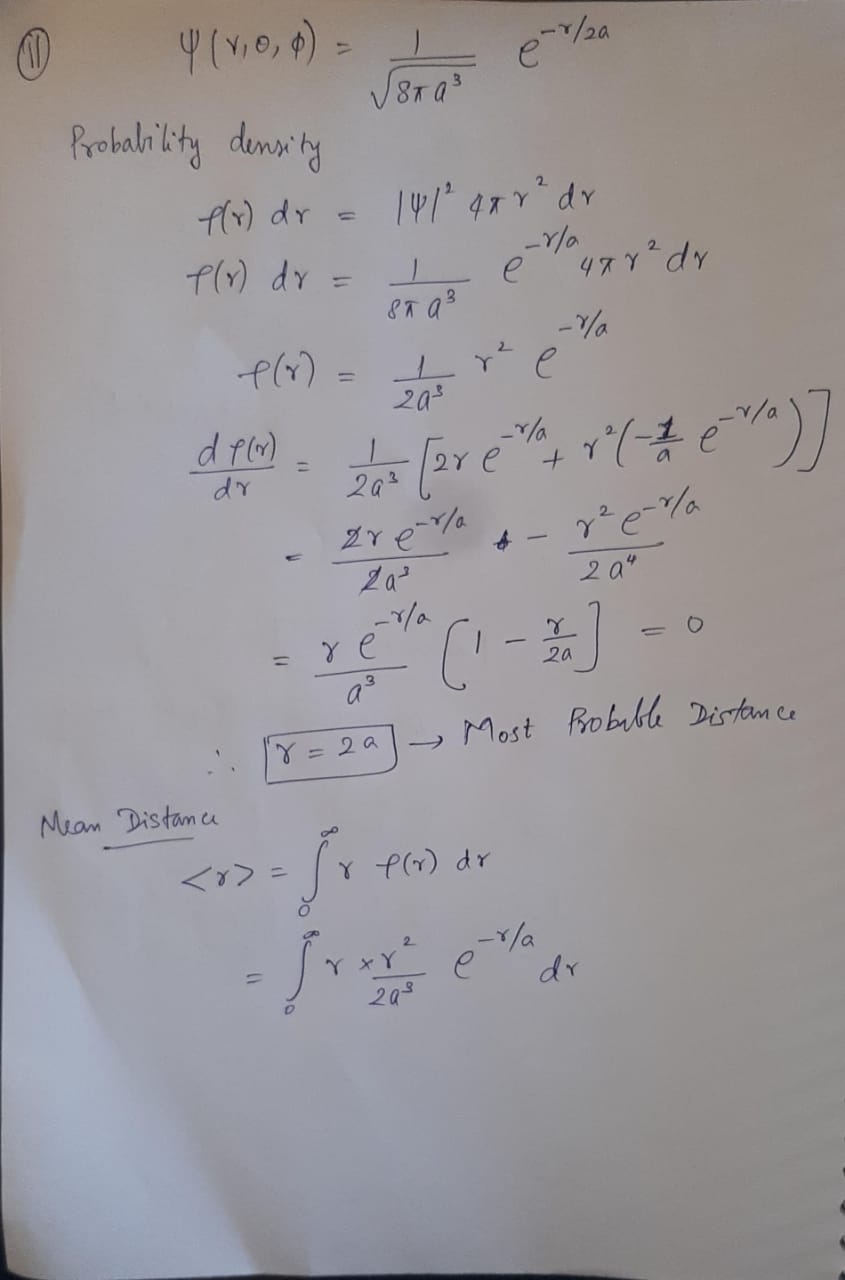 (11) ψ(r,θ,φ) = 1/√(8πa³) e^(-r/2a)
Probability density
P(r) dr = |ψ|² 4πr² dr
P(r) dr = 1/(8πa³) e^(-r/a) 4πr² dr
P(r) = 1/(2a³) r² e^(-r/a)
dP(r)/dr = 1/(2a³) [2r e^(-r/a) + r²(-1/a e^(-r/a))]
= 2r e^(-r/a)/(2a³) - r² e^(-r/a)/(2a⁴)
= r e^(-r/a)/a³ [1 - r/2a] = 0
∴ r = 2a → Most Probable Distance
Mean Distance
<r> = ∫₀^∞ r P(r) dr
= ∫₀^∞ r × r²/(2a³) e^(-r/a) dr